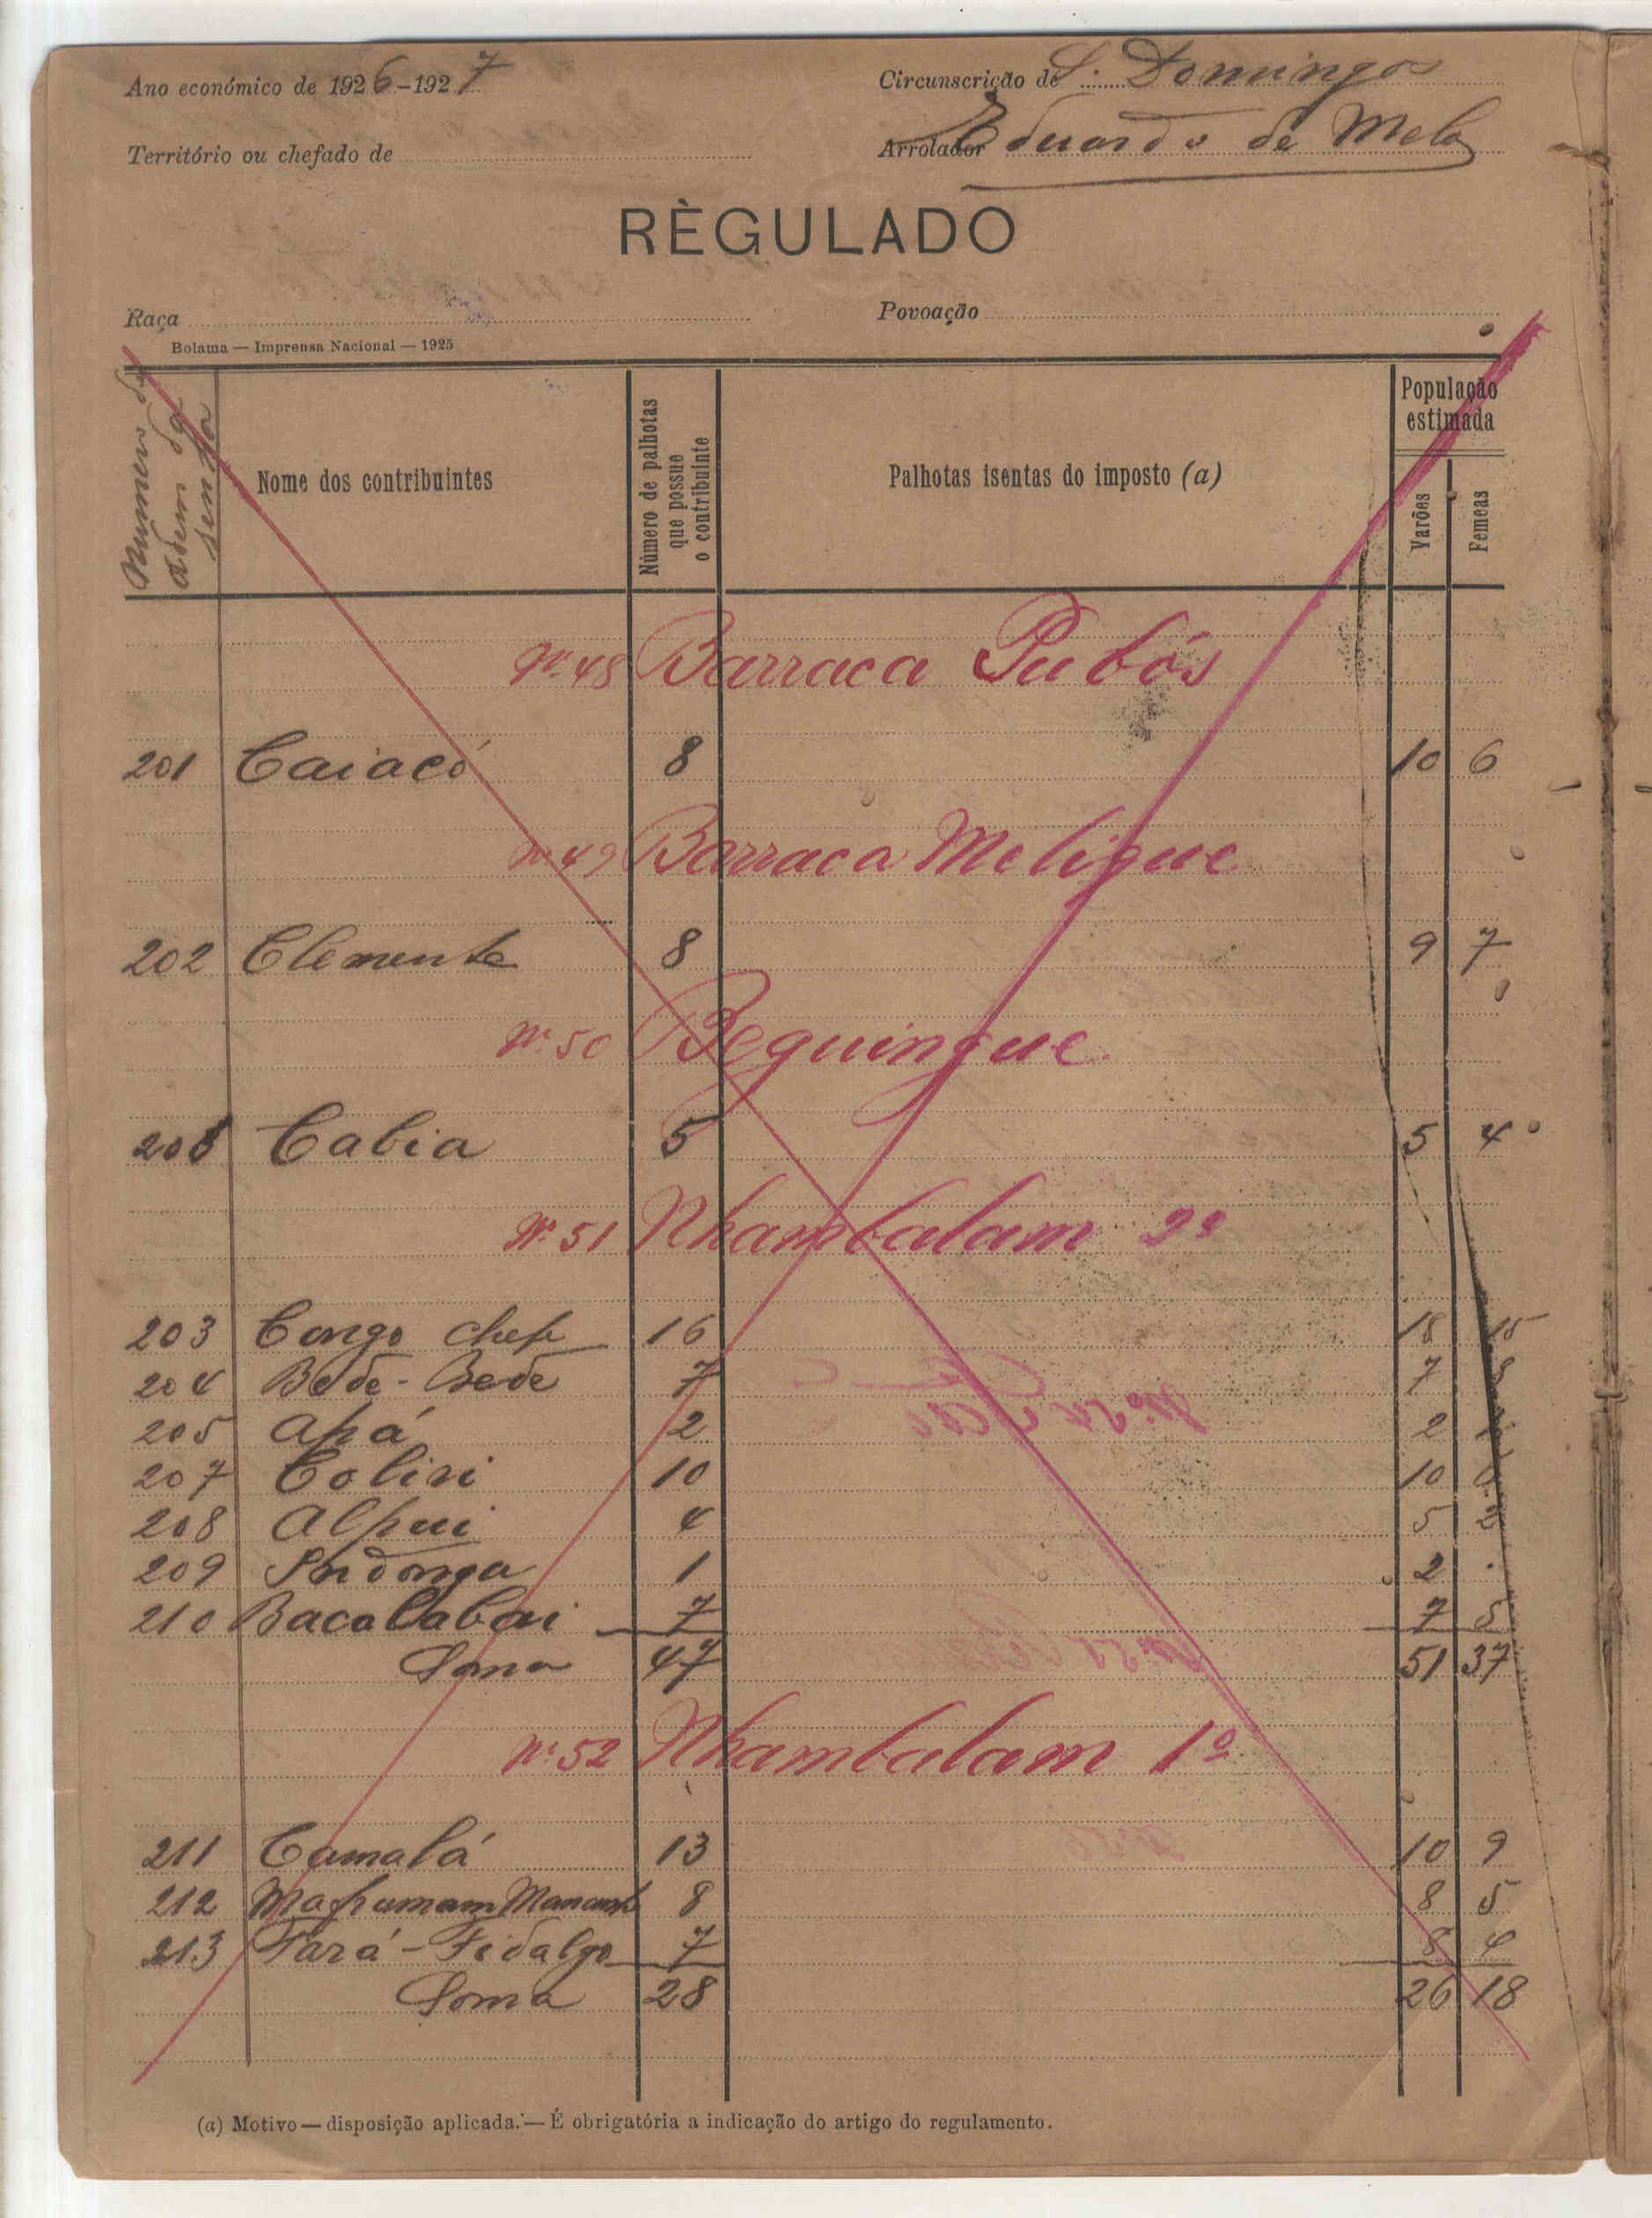 Ano económico de 1926-1927
Circunscrição de S. Domingos
Território ou chefado de
Arrolador Eduardo de Melo
RÈGULADO
Raça
Povoação
Bolama — Imprensa Nacional — 1925
Numero de
Nome dos contribuintes
Número de palhotas que possue o contribuinte
Palhotas isentas do imposto (a)
População estimada
Varões
Femeas
Nº 48 Barraca Pubós
201 Caiacó 8 10 6
Nº 49 Barraca Meligue
202 Clemente 8 9 7
Nº 50 Beguingue
Cabia 5 5 4
Nº 51 Nhambalam 2º
203 Congo chefe 16 18 15
204 Bede-Bede 7 7
205 Apá 2 2
207 Coliri 10 10
208 Alpui 4 5 2
209 Indonga 1 2
210 Bacalabai 7 7 5
Soma 47 51 37
Nº 52 Nhambalam 1º
211 Camalá 13 10 9
212 8 8 5
213 Fará-Fidalgo 7 8 4
Soma 28 26 18
(a) Motivo — disposição aplicada. — É obrigatória a indicação do artigo do regulamento.